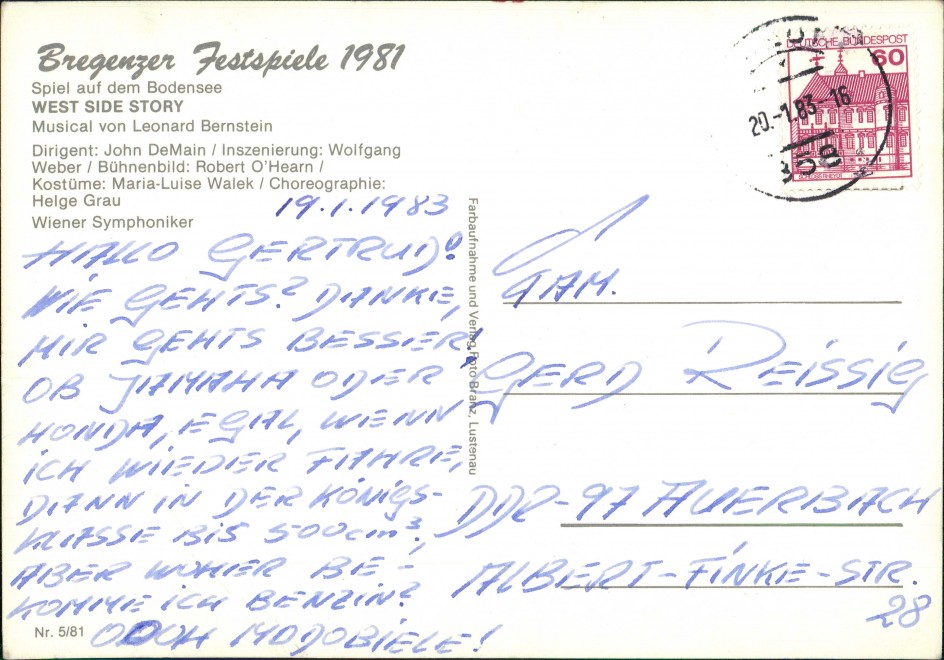 Bregenzer Festspiele 1981
Spiel auf dem Bodensee
WEST SIDE STORY
Musical von Leonard Bernstein
Dirigent: John DeMain / Inszenierung: Wolfgang
Weber / Bühnenbild: Robert O'Hearn /
Kostüme: Maria-Luise Walek / Choreographie:
Helge Grau
Wiener Symphoniker
19.1.1983
HALLO GERTRUD!
WIE GEHTS? DANKE,
MIR GEHTS BESSER!
OB JAMAHA ODER
HONDA, EGAL, WENN
ICH WIEDER FAHRE,
DANN IN DER KÖNIGS-
KLASSE BIS 500cm³,
ABER WOHER BE-
KOMME ICH BENZIN?
OOOH MODOBIELE!
Nr. 5/81
Farbaufnahme und Verlag Foto Branz, Lustenau
DEUTSCHE BUNDESPOST
60
20.-1.83-16
358
FAM.
GERD REISSIG
DDR-97 AUERBACH
ALBERT-FINKE-STR.
28